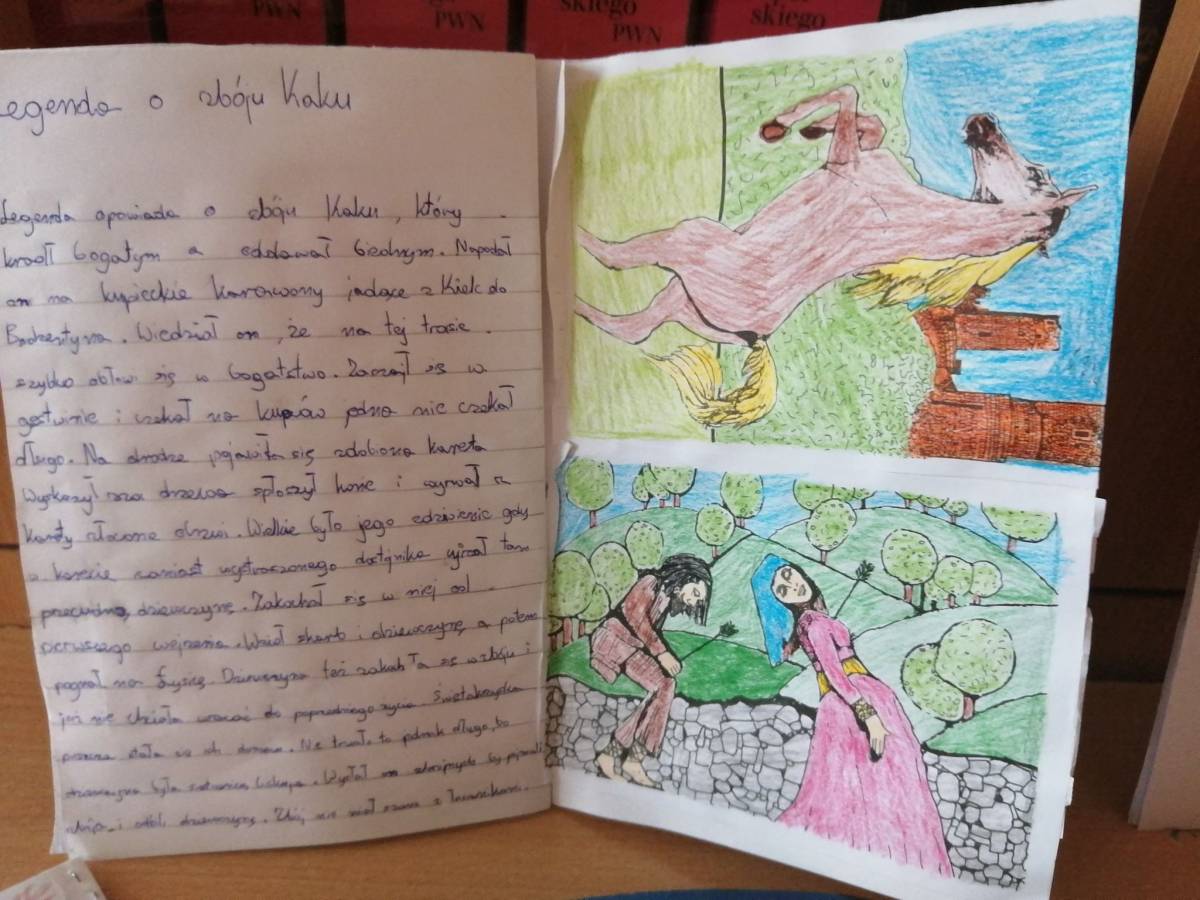 skiego
PWN
skiego
PWN
PWN
egenda o zbóju Kaku
Legenda opowiada o zbóju Kaku, który
kradł bogatym a oddawał biednym. Napadał
on na kupieckie karawony jadące z Kielc do
Bodzentyna. Wiedział on, że na tej trasie
szybko obłow się w bogatstwo. Zaczaił się w
gęstwinie i czekał na kupców jedna nie czekał
długo. Na drodze pojawiła się zdobiona kareta
Wyskoczył zza drzewa spłoszył konie i wyrwał z
karety złocone drzwi. Wielkie było jego zdziwienie gdy
w karecie zamiast wystraszonego dostojnika ujrzał tam
przecudną dziewczynę. Zakochał się w niej od
pierwszego wejrzenia. Wziął skarb i dziewczynę a potem
pognał na Łysicę. Dziewczyna też zakochała się w zbóju i
już nie chciała wracać do poprzedniego życia. Świętokrzyska
puszcza stała się ich domem. Nie trwało to jednak długo, bo
dziewczyna była siostrzenicą biskupa. Wysłał on zbrojnych by pojmali
zbója i odbili dziewczynę. Zbój nie miał szans z łucznikami.